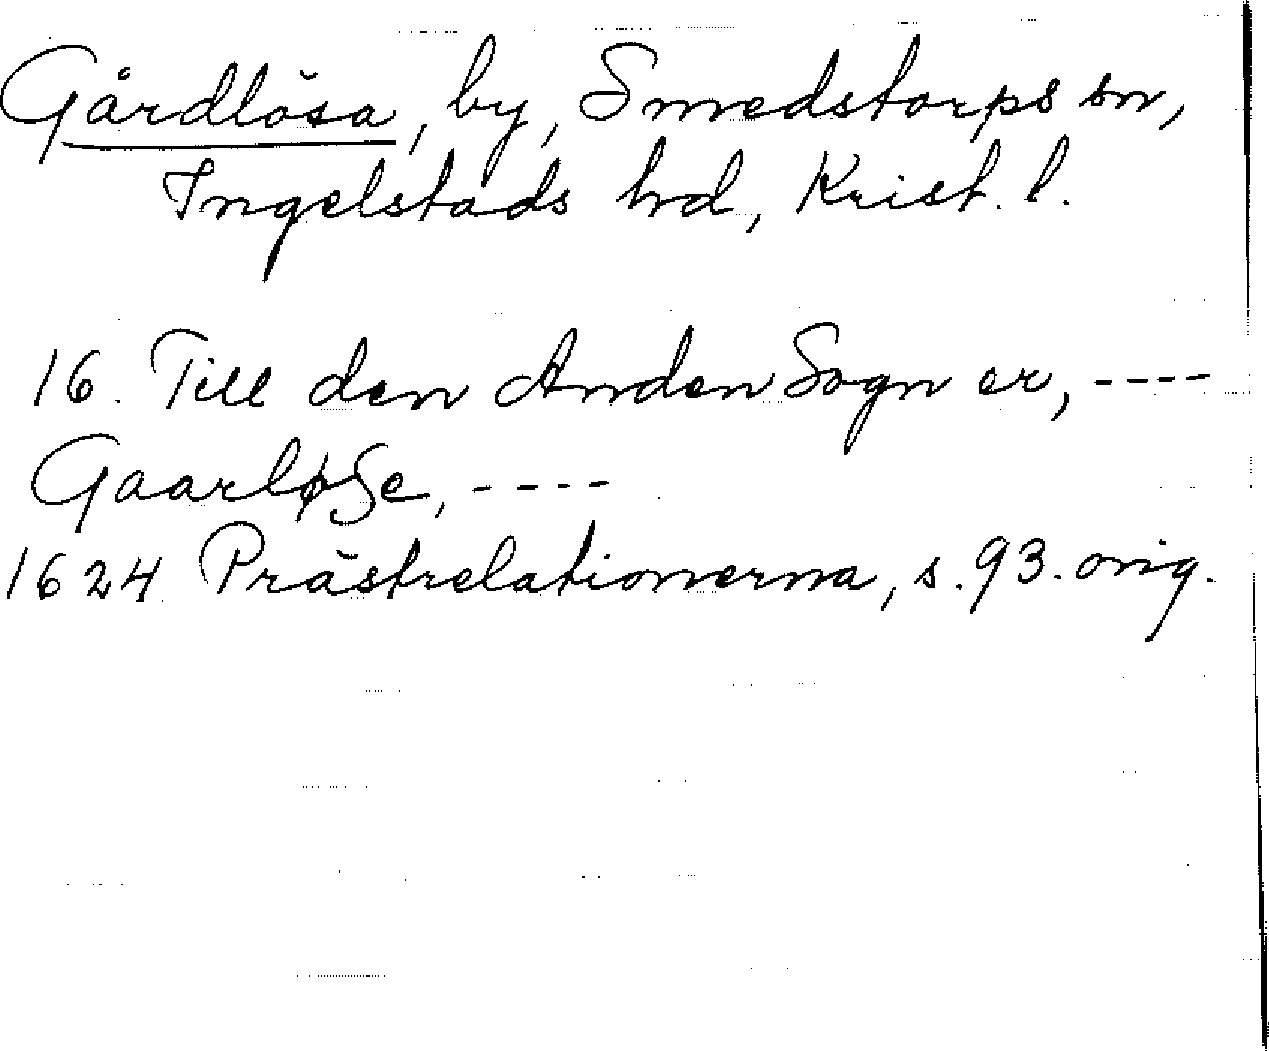 Gårdlösa, by, Smedstorps sn,
Ingelstads hd, Krist. l.
16. Till den Anden Sogn er, ----
GaarløSe, ----
1624 Prästrelationerna, s. 93. orig.